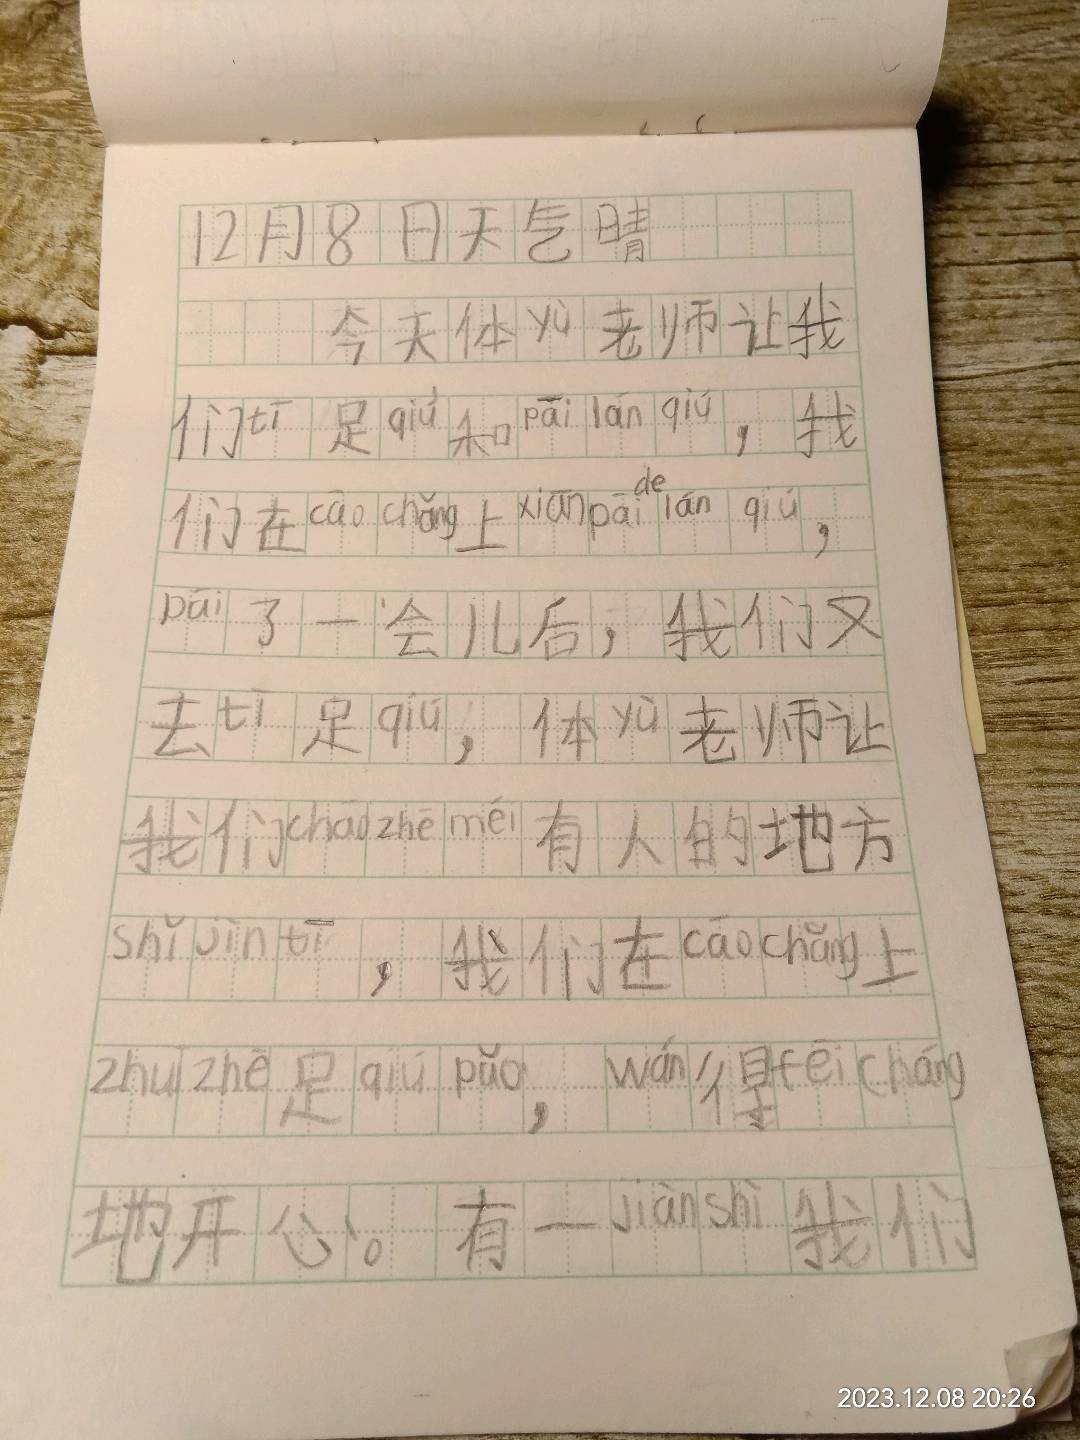 12月8日天气晴
今天体yù老师让我
们tī足qiú和pāi lán qiú，我
们在cāo chǎng上xiān pāi de lán qiú，
pāi了一会儿后，我们又
去tī足qiú，体yù老师让
我们cháo zhē méi有人的地方
shǐ jìn tī，我们在cāo chǎng上
zhuī zhē足qiú pǎo，wán得fēi cháng
地开心。有一jiàn shì我们
2023.12.08 20:26